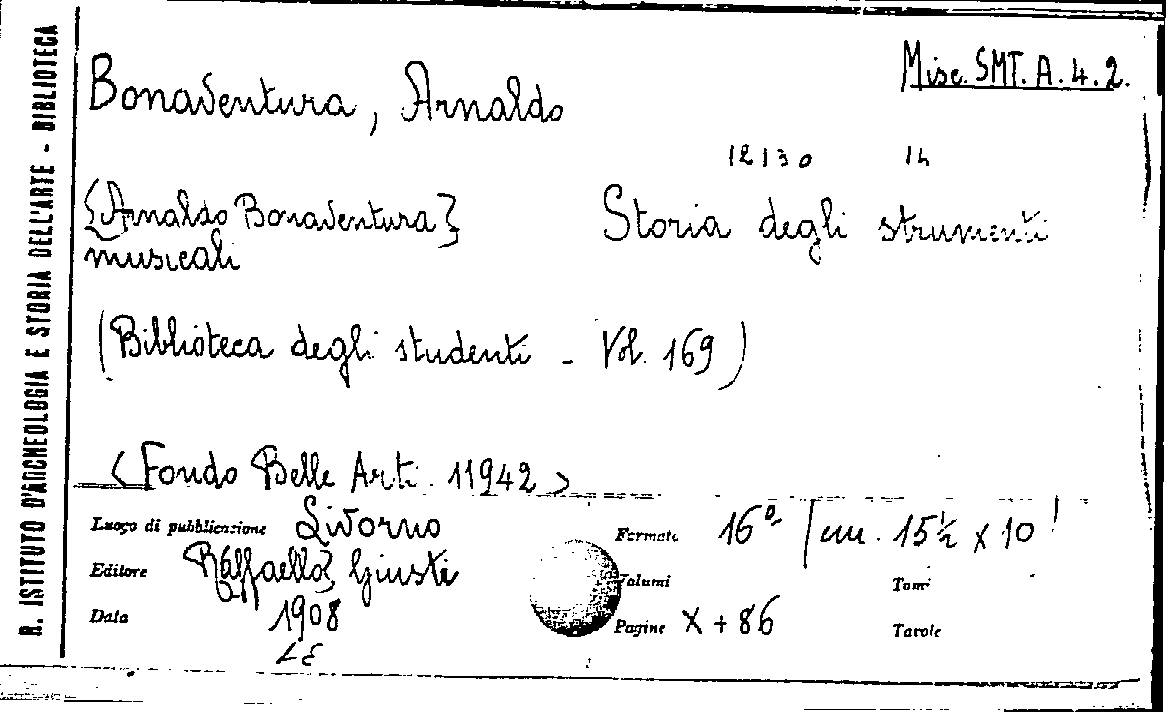 R. ISTITUTO D'ARCHEOLOGIA E STORIA DELL'ARTE - BIBLIOTECA
Misc. SMT. A. 4. 2.
Bonaventura, Arnaldo
12130 14
{Arnaldo Bonaventura} Storia degli strumenti
musicali
(Biblioteca degli studenti - Vol. 169)
<Fondo Belle Arti. 11942>
Luogo di pubblicazione Livorno Formato 16º- / cm. 15½ x 10
Editore R{affaello} Giusti Volumi Tomi
Data 1908 Pagine X + 86 Tavole
LE